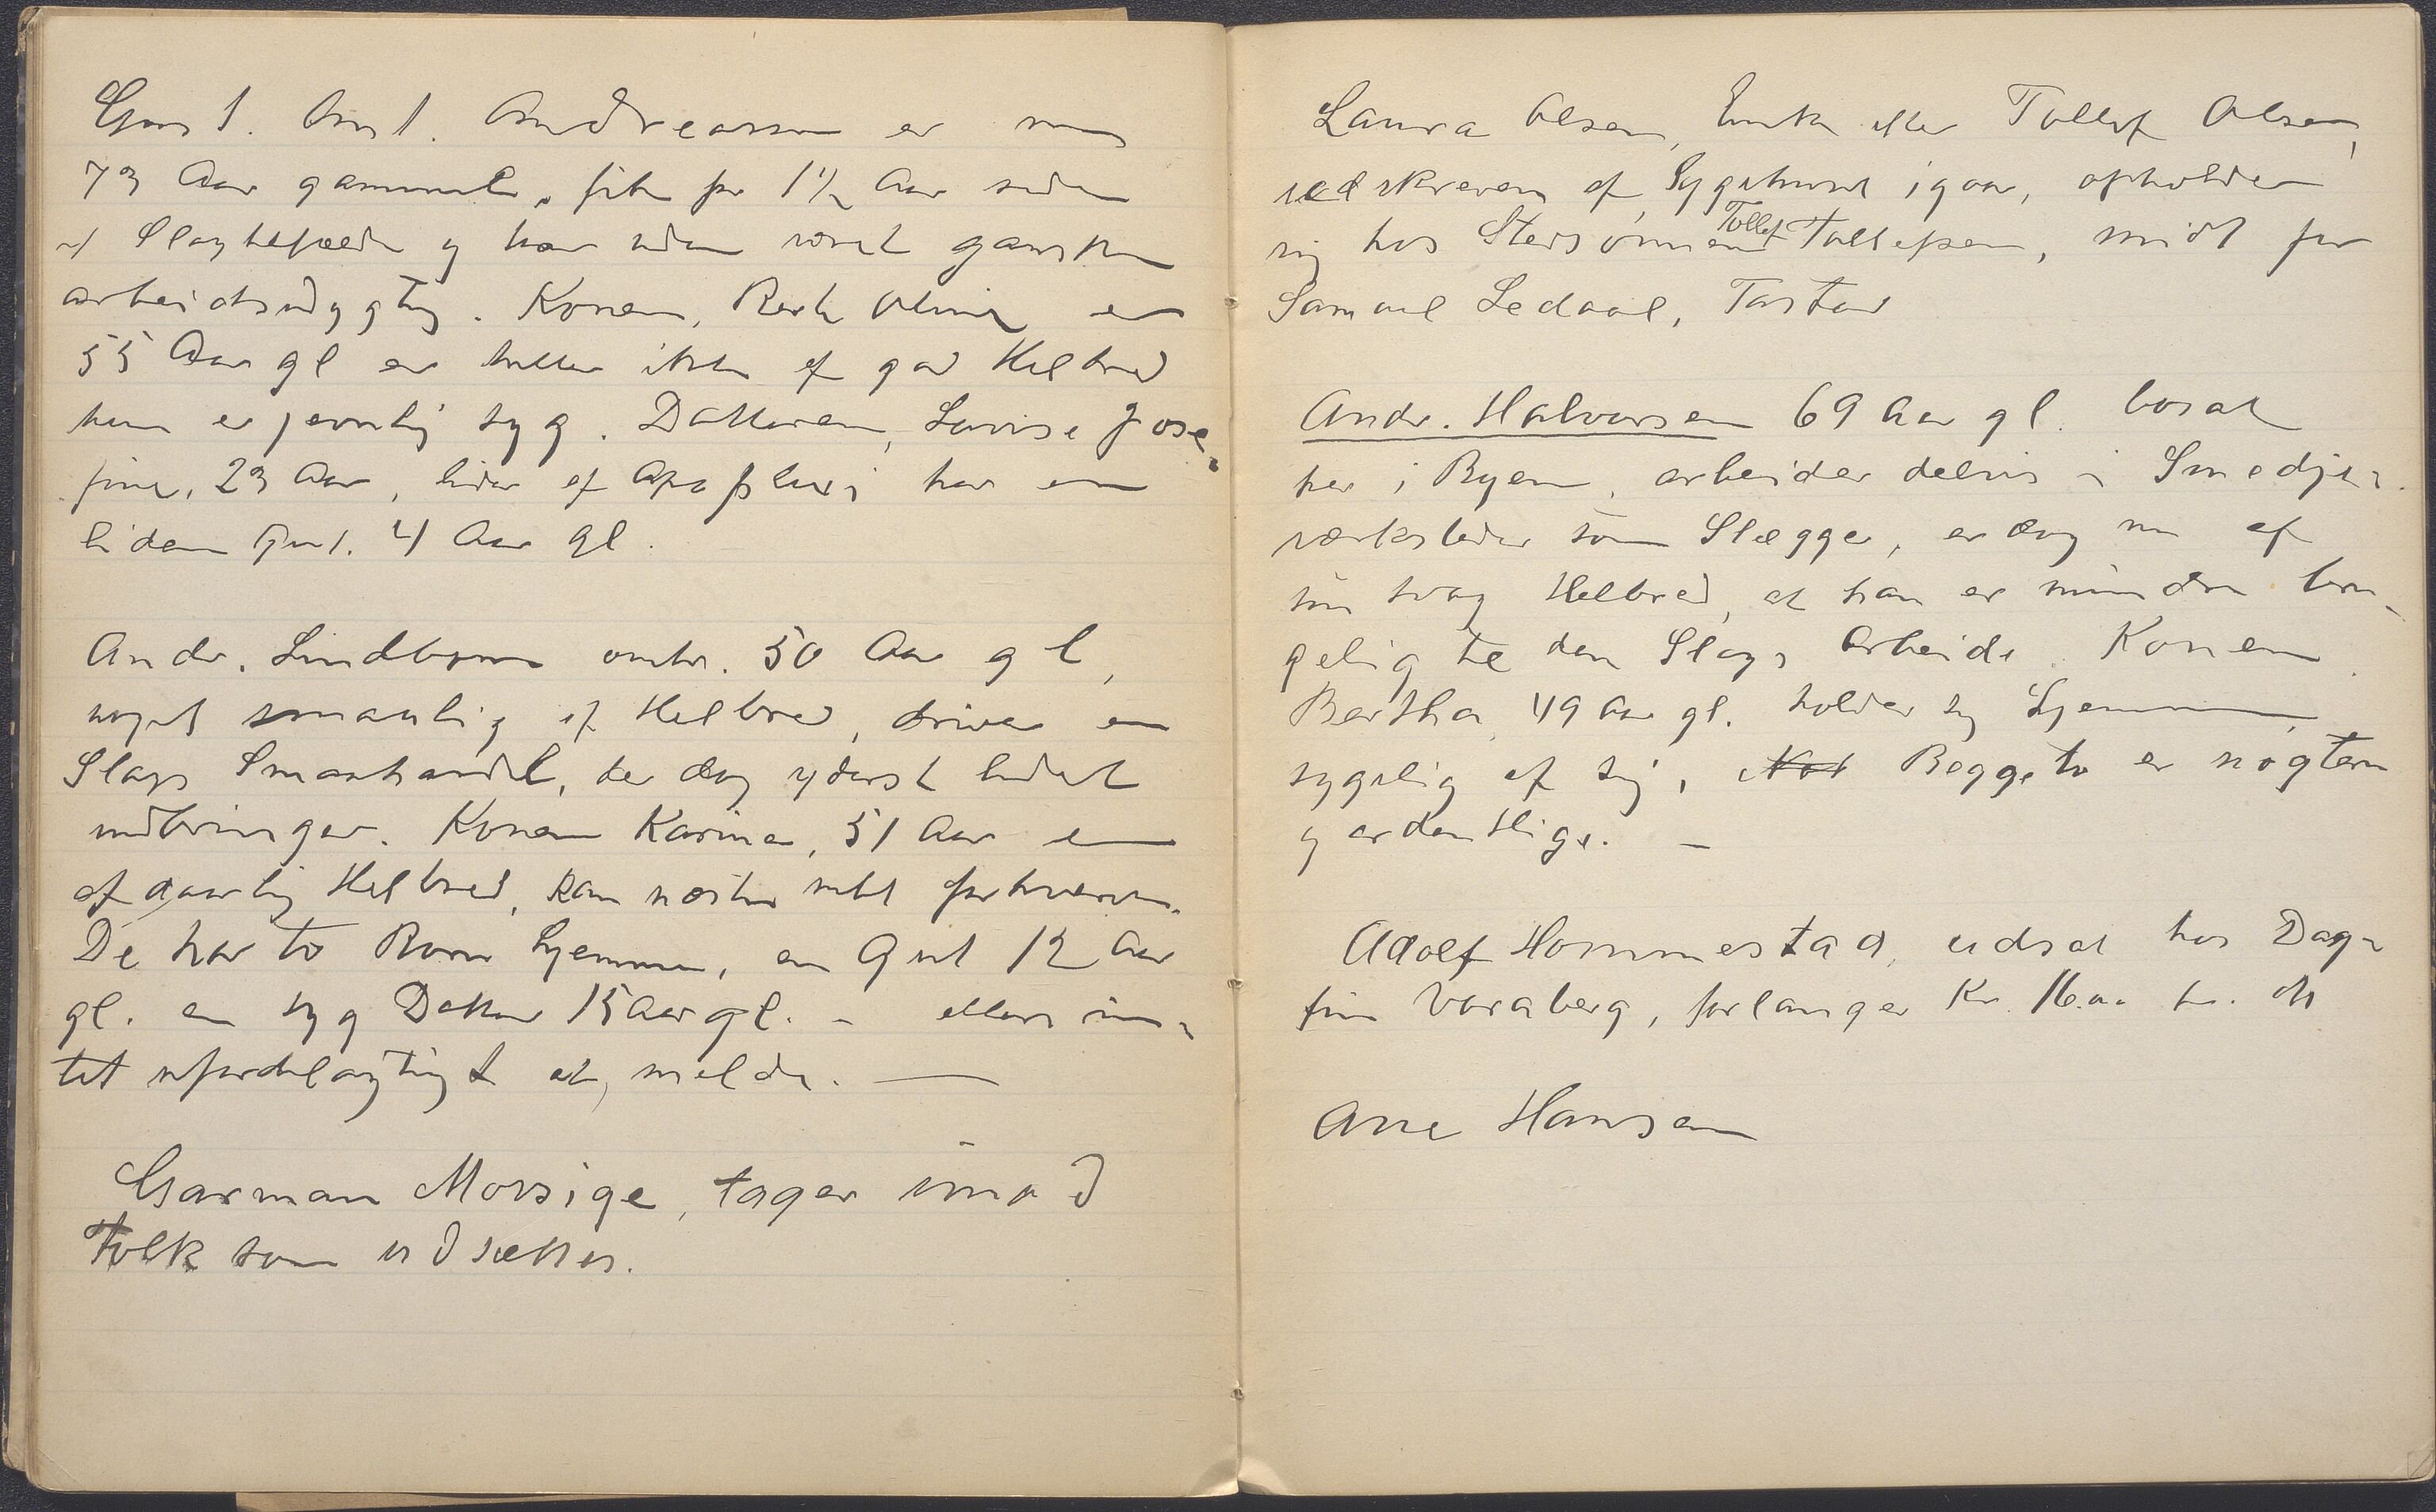 Gust. Aust. Andreassen er nu
73 Aar gammel, fik for 1½ Aar siden
et Slagtilfælde og har siden været ganske
arbeidsudygtig. Konen, Berte Oline er
55 Aar gl er heller ikke af god Helbred
hun er jevnlig syg. Datteren, Lovise Jose-
fine, 23 Aar, lider af Apoplexi har en
liden Gut. 4 Aar gl.
Andr. Lindbom omtr. 50 Aar gl,
noget smaalig af Helbred, driver en
Slags Smaahandel, der dog yderst lidet
indbringer. Konen Karine, 51 Aar er
af daarlig Helbred, kan næsten intet forhverve.
De har to Børn hjemme, en Gut 12 Aar
gl. en syg Datter 15 Aar gl. - ellers in-
tet ufordelagtigt at melde. —
Garman Morsige, tager imod
Folk som udsættes.
Laura Olsen, Enke efter Tollef Olsen,
udskreven af Sygehuset igaar, opholder
sig hos Stedsønnen Tollef Tollefsen, midt for
Samuel Ledaal, Tasta
Andr. Halvorsen 69 Aar gl. bosat
her i Byen, arbeider delvis i Smedje-
værksteder som Slægger, er dog nu af
saa svag Helbred, at han er mindre bru-
gelig til den Slags Arbeide. Konen
Bertha, 49 Aar gl. holder sig hjemme,
sygelig af sig, Begge to er nøgterne
og ordentlige. —
Adolf Hommestad, udsat hos Dag-
fin Varaberg, forlanger Kr. 16.00 pr. M
Arne Hansen